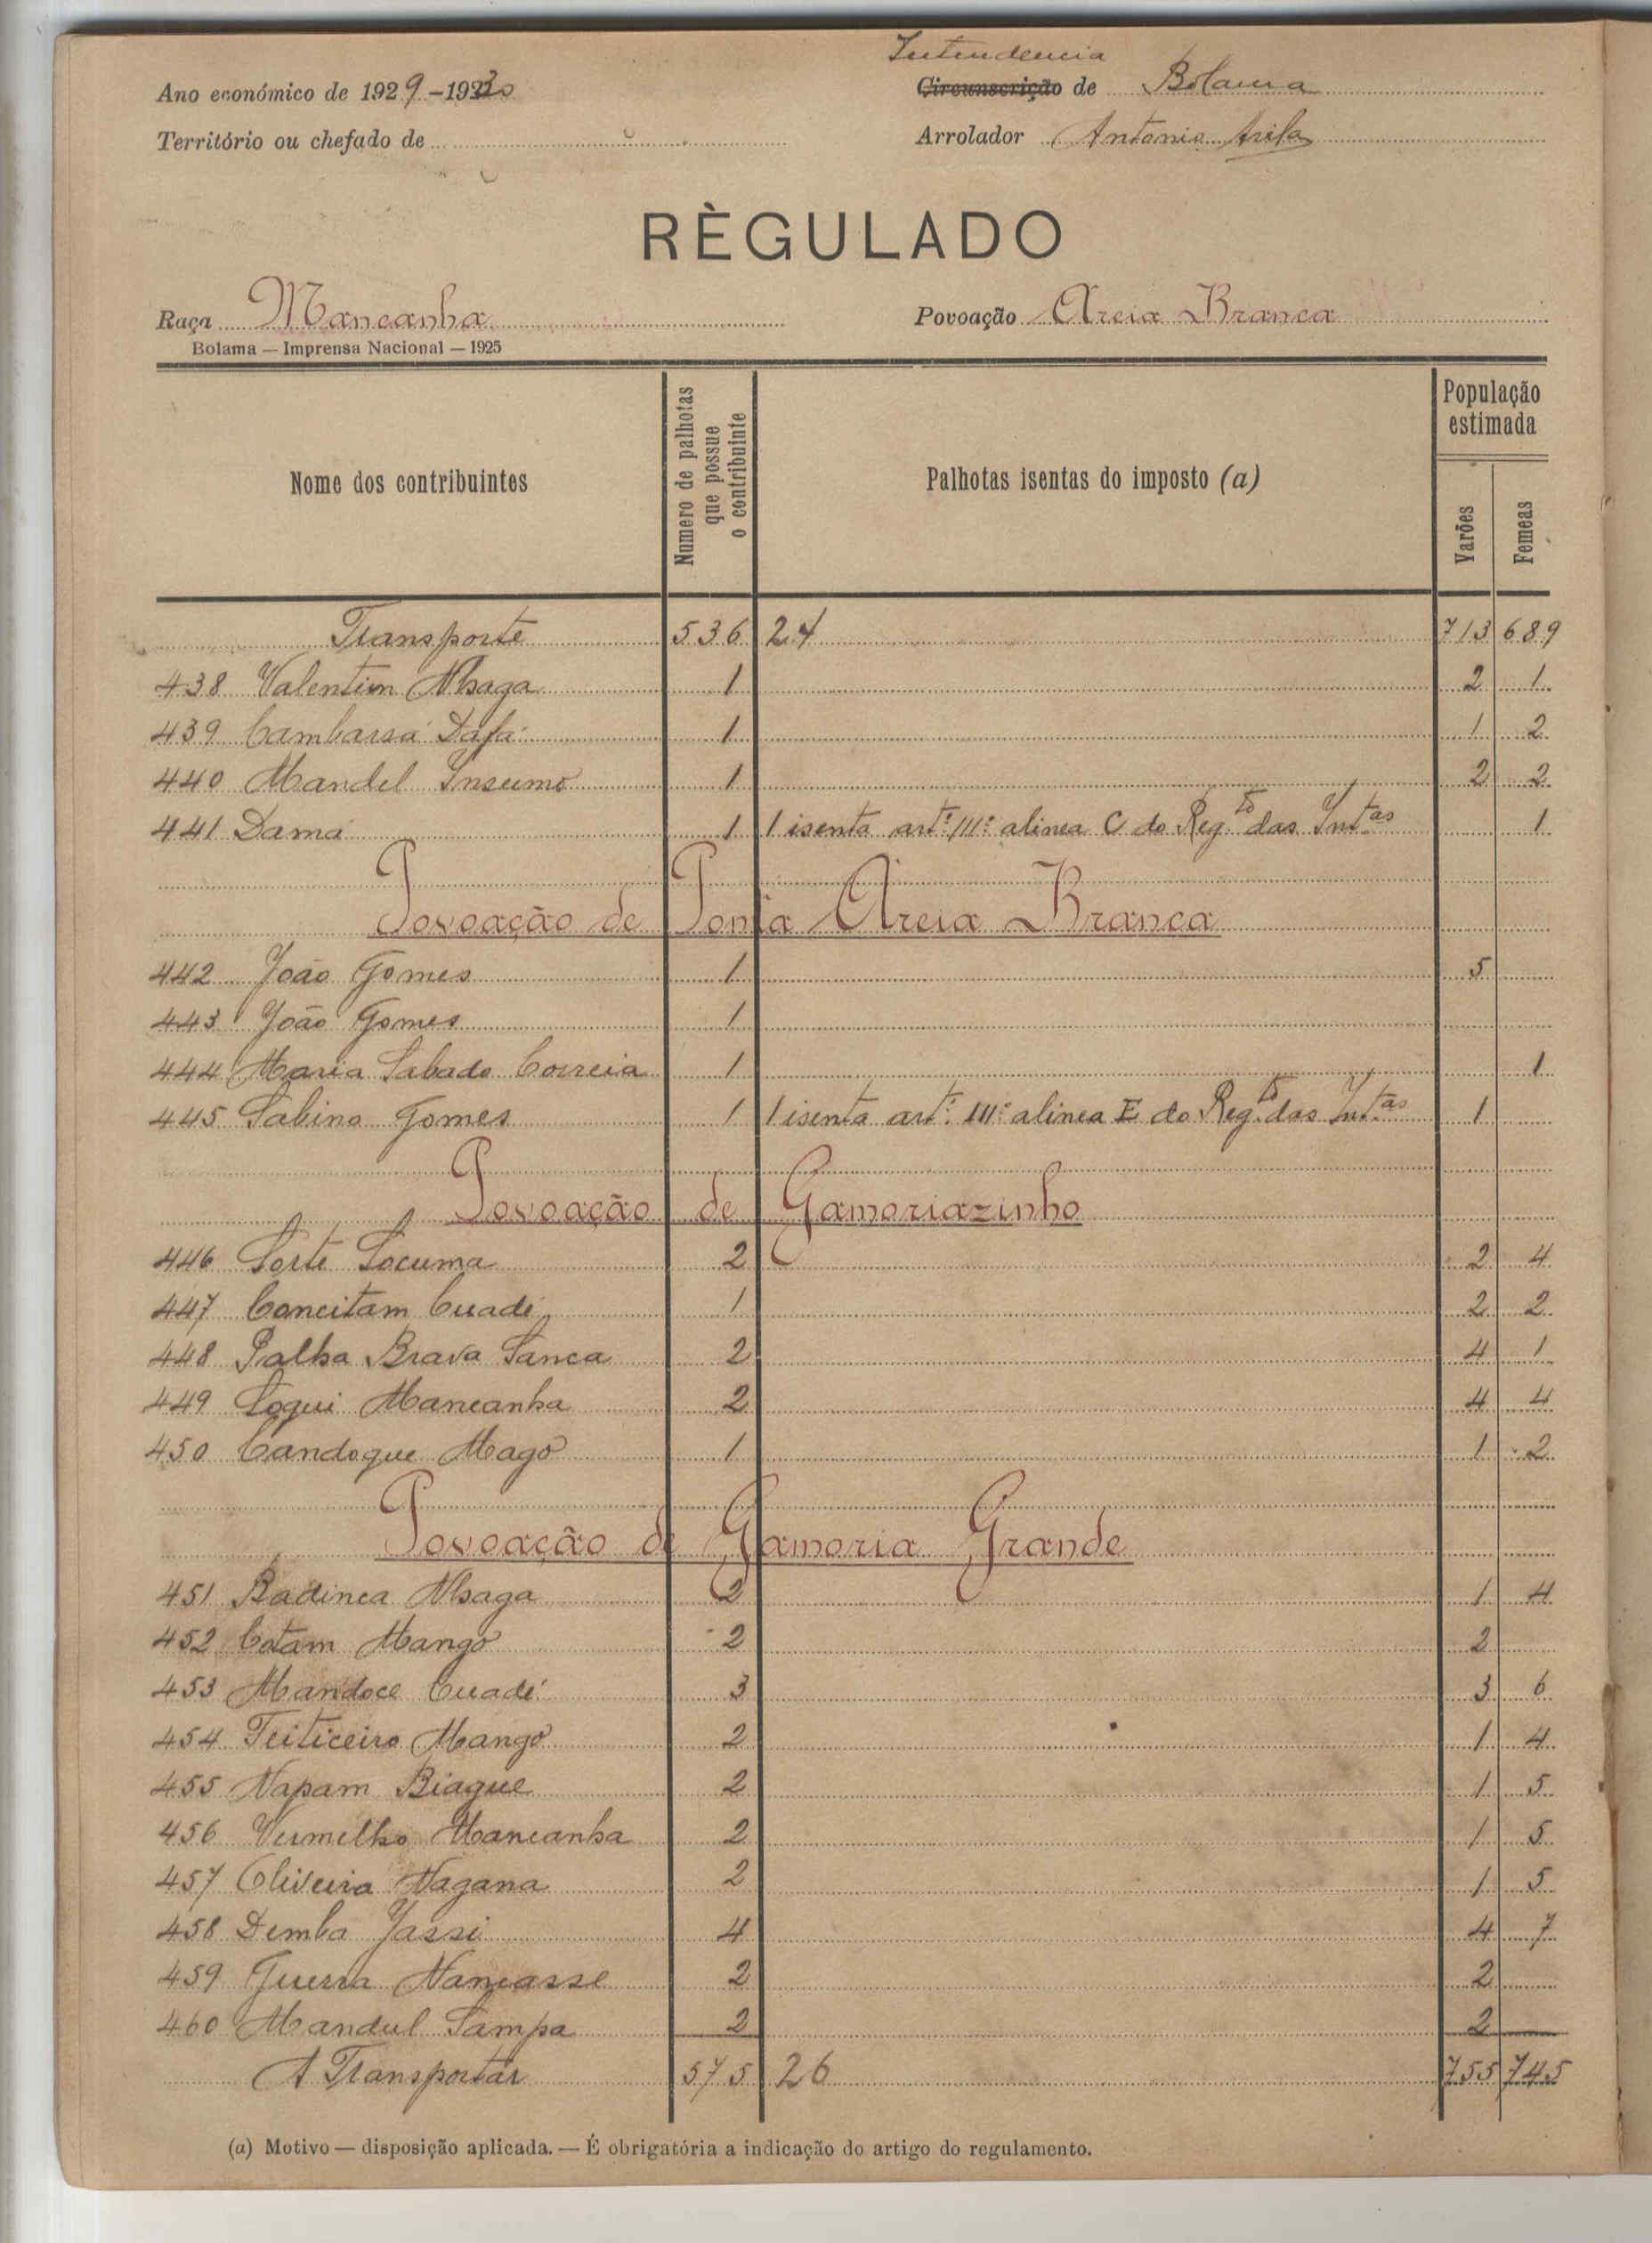 Intendencia
Ano económico de 1929-1930
Circunscrição de Bolama
Território ou chefado de
Arrolador Antonio
RÈGULADO
Raça Mancanha
Povoação Areia Branca
Bolama — Imprensa Nacional — 1925
Nome dos contribuintes
Numero de palhotas que possue o contribuinte
Palhotas isentas do imposto (a)
População estimada
Varões
Femeas
Transporte 536 24 713 689
438 Valentim Nhaga 1 2 1
439 Cambarsá Dafá 1 1 2
440 Mandel Insumo 1 2 2
441 Damá 1 1 isenta artº 111º alinea C do Reg.to das Int.as 1
Povoação de Ponta Areia Branca
442 João Gomes 1 5
443 João Gomes 1
444 Maria Sabado Correia 1 1
445 Sabino Gomes 1 1 isenta artº 111º alinea E do Reg.to das Int.as 1
Povoação de Gamoriazinho
446 Sorte Socuma 2 2 4
447 Concitam Cuadé 1 2 2
448 Palha Brava Sanca 2 4 1
449 Logui Mancanha 2 4 4
450 Candogue Mago 1 1 2
Povoação de Gamoria Grande
451 Badinca Nhaga 2 1 4
452 Cotam Mango 2 2
453 Mandoce Cuadé 3 3 6
454 Feiticeiro Mango 2 1 4
455 Napam Biague 2 1 5
456 Vermelho Mancanha 2 1 5
457 Oliveira Nagana 2 1 5
458 Demba Jassi 4 4 7
459 Guerra Nancasse 2 2
460 Mandul Sampa 2 2
A Transportar 575 26 755 745
(a) Motivo — disposição aplicada. — É obrigatória a indicação do artigo do regulamento.